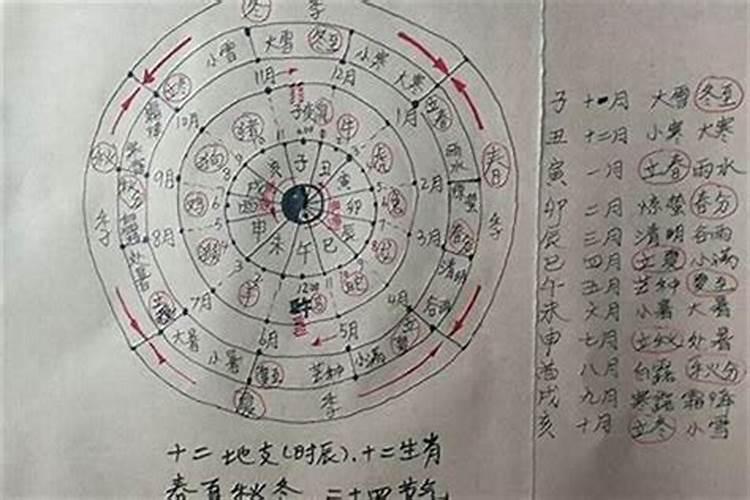 冬 季
小雪 大雪 冬至 小寒 大寒
立冬 11月 12月 立春
10月 1月
子 丑 寅 卯 辰 巳 午 未 申 酉 戌 亥
鼠 牛 虎 兔 龙 蛇 马 羊 猴 鸡 狗 猪
秋 季
春 季
9月 2月
雨水
惊蛰
秋分 春分
8月 3月
清明
处暑 谷雨
立秋 7月 4月 立夏
6月 5月
大暑 小暑 夏至 芒种 小满
夏 季
子 十一月 大雪 冬至
丑 十二月 小寒 大寒
寅 一月 立春 雨水
卯 二月 惊蛰 春分
辰 三月 清明 谷雨
巳 四月 立夏 小满
午 五月 芒种 夏至
未 六月 小暑 大暑
申 七月 立秋 处暑
酉 八月 白露 秋分
戌 九月 寒露 霜降
亥 十月 立冬 小雪
十二地支(时辰)、十二生肖
春夏秋冬 二十四节气